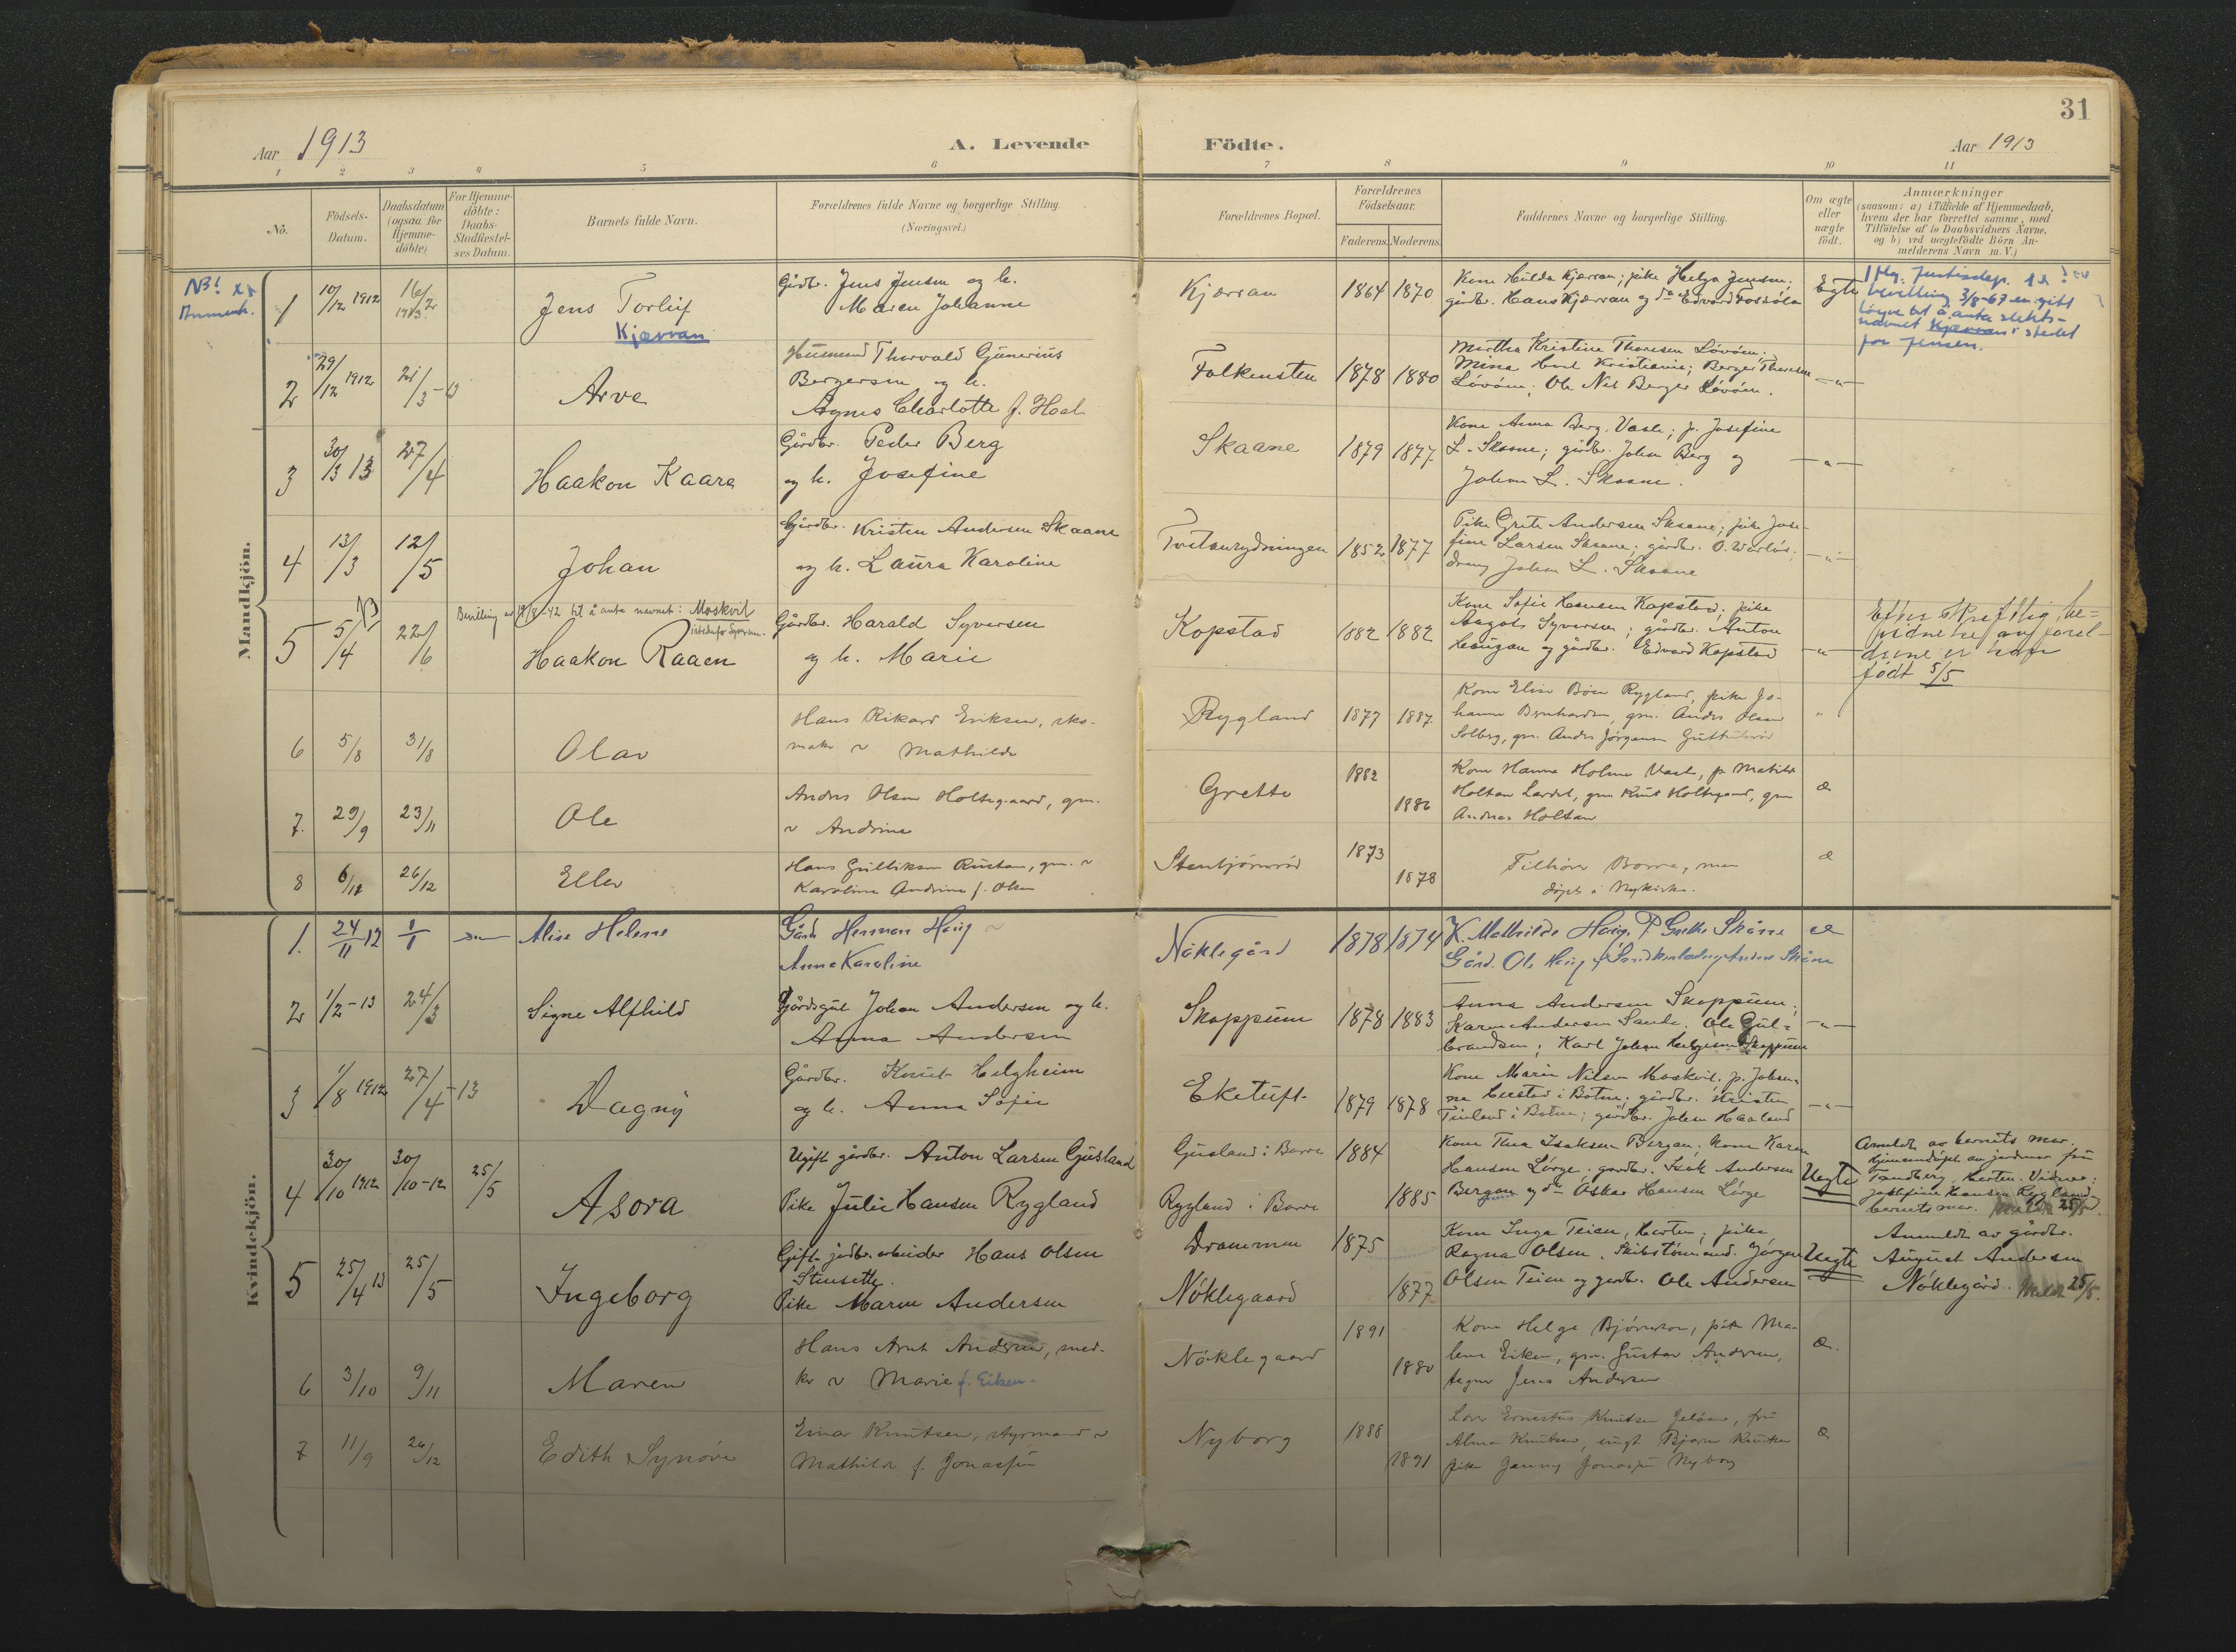 31
Aar 1913
A. Levende
Födte.
Aar 1913
1 2 3 4 5 6 7 8 9 10 11
No.
Födsels-
Datum.
Daabsdatum
(ogsaa for
Hjemme-
döbte)
For Hjemme-
döbte:
Daabs-
Stadfæstel-
ses Datum.
Barnets fulde Navn.
Forældrenes fulde Navne og borgerlige Stilling.
(Næringsvei.)
Forældrenes Bopæl.
Forældrenes
Födselsaar.
Faderens. Moderens.
Faddernes Navne og borgerlige Stilling.
Om ægte
eller
uægte
födt.
Anmærkninger
(saasom: a) i Tilfælde af Hjemmedaab,
hvem der har forrettet samme, med
Tilföielse af to Daabsvidners Navne,
og b) ved uægtefödte Börn An-
melderens Navn m. V.)
Mandkjön.
NB!
1 10/12 1912 16/2 1913
Jens Torluf
Kjærran
Gårdbr. Jens Jensen og h.
Maren Johanne
Kjærran 1864 1870
Kone Hulda Kjærran; pike Helga Jensen;
gårdbr. Hans Kjærran og do Edvard
Egte
bevilling 3/8-67 er gitt
løyve til å anta slekts-
navnet Kjærran i stedet
for Jensen.
2 29/12 1912 24/3-13
Arve
Husmand Thorvald Gunerius
Bergersen og h.
Agnes Charlotte f.
Falkensten 1878 1880
Martha Kristine Thoresen Lövöen;
Mina Kristiania; Berger Thoresen
Lövöen; Ole Nil Berger Lövöen.
-"-
3 30/3 13 27/4
Haakon Kaare
Gårdbr. Peder Berg
og h. Josefine
Skaane 1879 1877
Kone Anna Berg, Vaale; p. Josefine
L. Skaane; gårdbr. Johan Berg og
Johan L. Skaane.
-"-
4 13/3 12/5
Johan
Gårdbr. Kristen Andersen Skaane
og h. Laura Karoline
1852 1877
Pike Grete Andersen Skaane; pike Jose-
fine Larsen Skaane; gårdbr. O.
dreng Johan L. Skaane
-"-
Bevilling av 19/8-42 til å anta navnet: Moskvil
istedenfor Syversen.
5 5/4 22/6
Haakon Raaen
Gårdbr. Harald Syversen
og h. Marie
Kopstad 1882 1882
Kone Sofie Hansen Kopstad; pike
Aagot Syversen; gårdbr. Anton
Haugan og gårdbr. Edvard Kopstad
-"-
Efter skriftlig be-
födt 5/5
6 5/8 31/8
Olav
Hans Rikard Eriksen, sko-
maker ~ Mathilde
Rygland 1877 1887
Kone Elise Böen Rygland, pike Jo-
hanne Bernhardsen, gm. Anders Olsen
Solberg, gm. Anders Jörgensen
"
7. 29/9 23/11
Ole
Anders Olsen Holtegaard, gm.
~ Andrine
Grette 1882 1886
Kone Hanna Holmen Vaale, p. Matilde
Holtan Lardal, gm Knut Holtegaard, gm
Andreas Holtan
æ
8 6/12 26/12
Ellev
Hans Gulliksen Rustan, gm. ~
Karoline Andrine f. Olsen
Stentjörnröd 1873 1878
Tilhörer Borre, men
döpt i Nykirke.
æ
Kvindekjön.
1. 24/11 12 1/1
Alise Helene
Gård. Herman Haug ~
Anna Karoline
Nöklegård 1878 1874
K. Mathilde Haug. P. Grethe Skåne
Gård. Ole Haug Anders Skåne
æ
2 1/2-13 24/3
Signe Alfhild
Gårdsgut Johan Andersen og h.
Anna Andersen
Skoppum 1878 1883
Anna Andersen Skoppum;
Karen Andersen Sande. Ole Gul-
brandsen; Karl Johan Helgesen Skoppum
-"-
3 1/8 1912 27/4-13
Dagny
Gårdbr. Knut Helgheim
og h. Anna Sofie
Eketuft 1879 1878
Kone Marie Nilsen Moskvil. p. Johan-
ne i Botne; gårdbr. Kristen
i Botne; gårdbr. Johan Haaland
-"-
4 30/10 1912 30/10-12 25/5
Asora
Ugift gårdbr. Anton Larsen Gusland
Pike Julie Hansen Rygland
Gusland i Borre 1884
Rygland i Borre 1885
Kone Thea Isaksen Bergan; kone Karen
Hansen Lörge. gårdbr. Isak Andersen
Bergan og do Oskar Hansen Lörge
Uegte
Anmeldt av barnets mor.
Hjemmedöpt av jordmor frk
Tandberg, Horten. Vidner:
Josefine Hansen Rygland
barnets mor. 25/5.
5 25/4 13 25/5
Ingeborg
Gift jordbr. arbeider Hans Olsen
Stensette.
Pike Maren Andersen
Drammen 1875
Nöklegaard 1877
Kone Inga Teien, Horten; pike
Ragna Olsen. Skibstömmerm. Jörgen
Olsen Teien og gårdbr. Ole Andersen
Uegte
Anmeldt av gårdbr.
August Andersen
Nöklegård. Meldt 25/5.
6 3/10 9/11
Maren
Hans Arnt Andersen, sned-
ker ~ Marie f. Eiken.
Nöklegaard 1891 1880
Kone Helga Björnson, pike Ma-
lene Eiken, gm. Gustav Andersen,
Jens Andersen
æ.
7 11/9 26/12
Edith Synöve
Einar Knutsen, styrmand ~
Mathilde f. Jonassen
Nyborg 1888 1891
Ernestus Knutsen Jelöen, fru
Alma Knutsen, ungk. Bjarne Knutsen
pike Jenny Jonassen Nyborg
æ